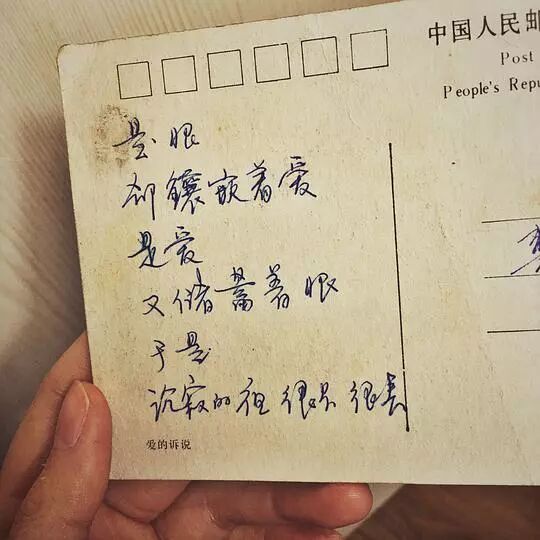 中国人民邮
Post
People's Repu
是 眼
却 镶嵌着爱
是爱
又储蓄着 眼
于是
沉寂的 很 很长
爱的诉说